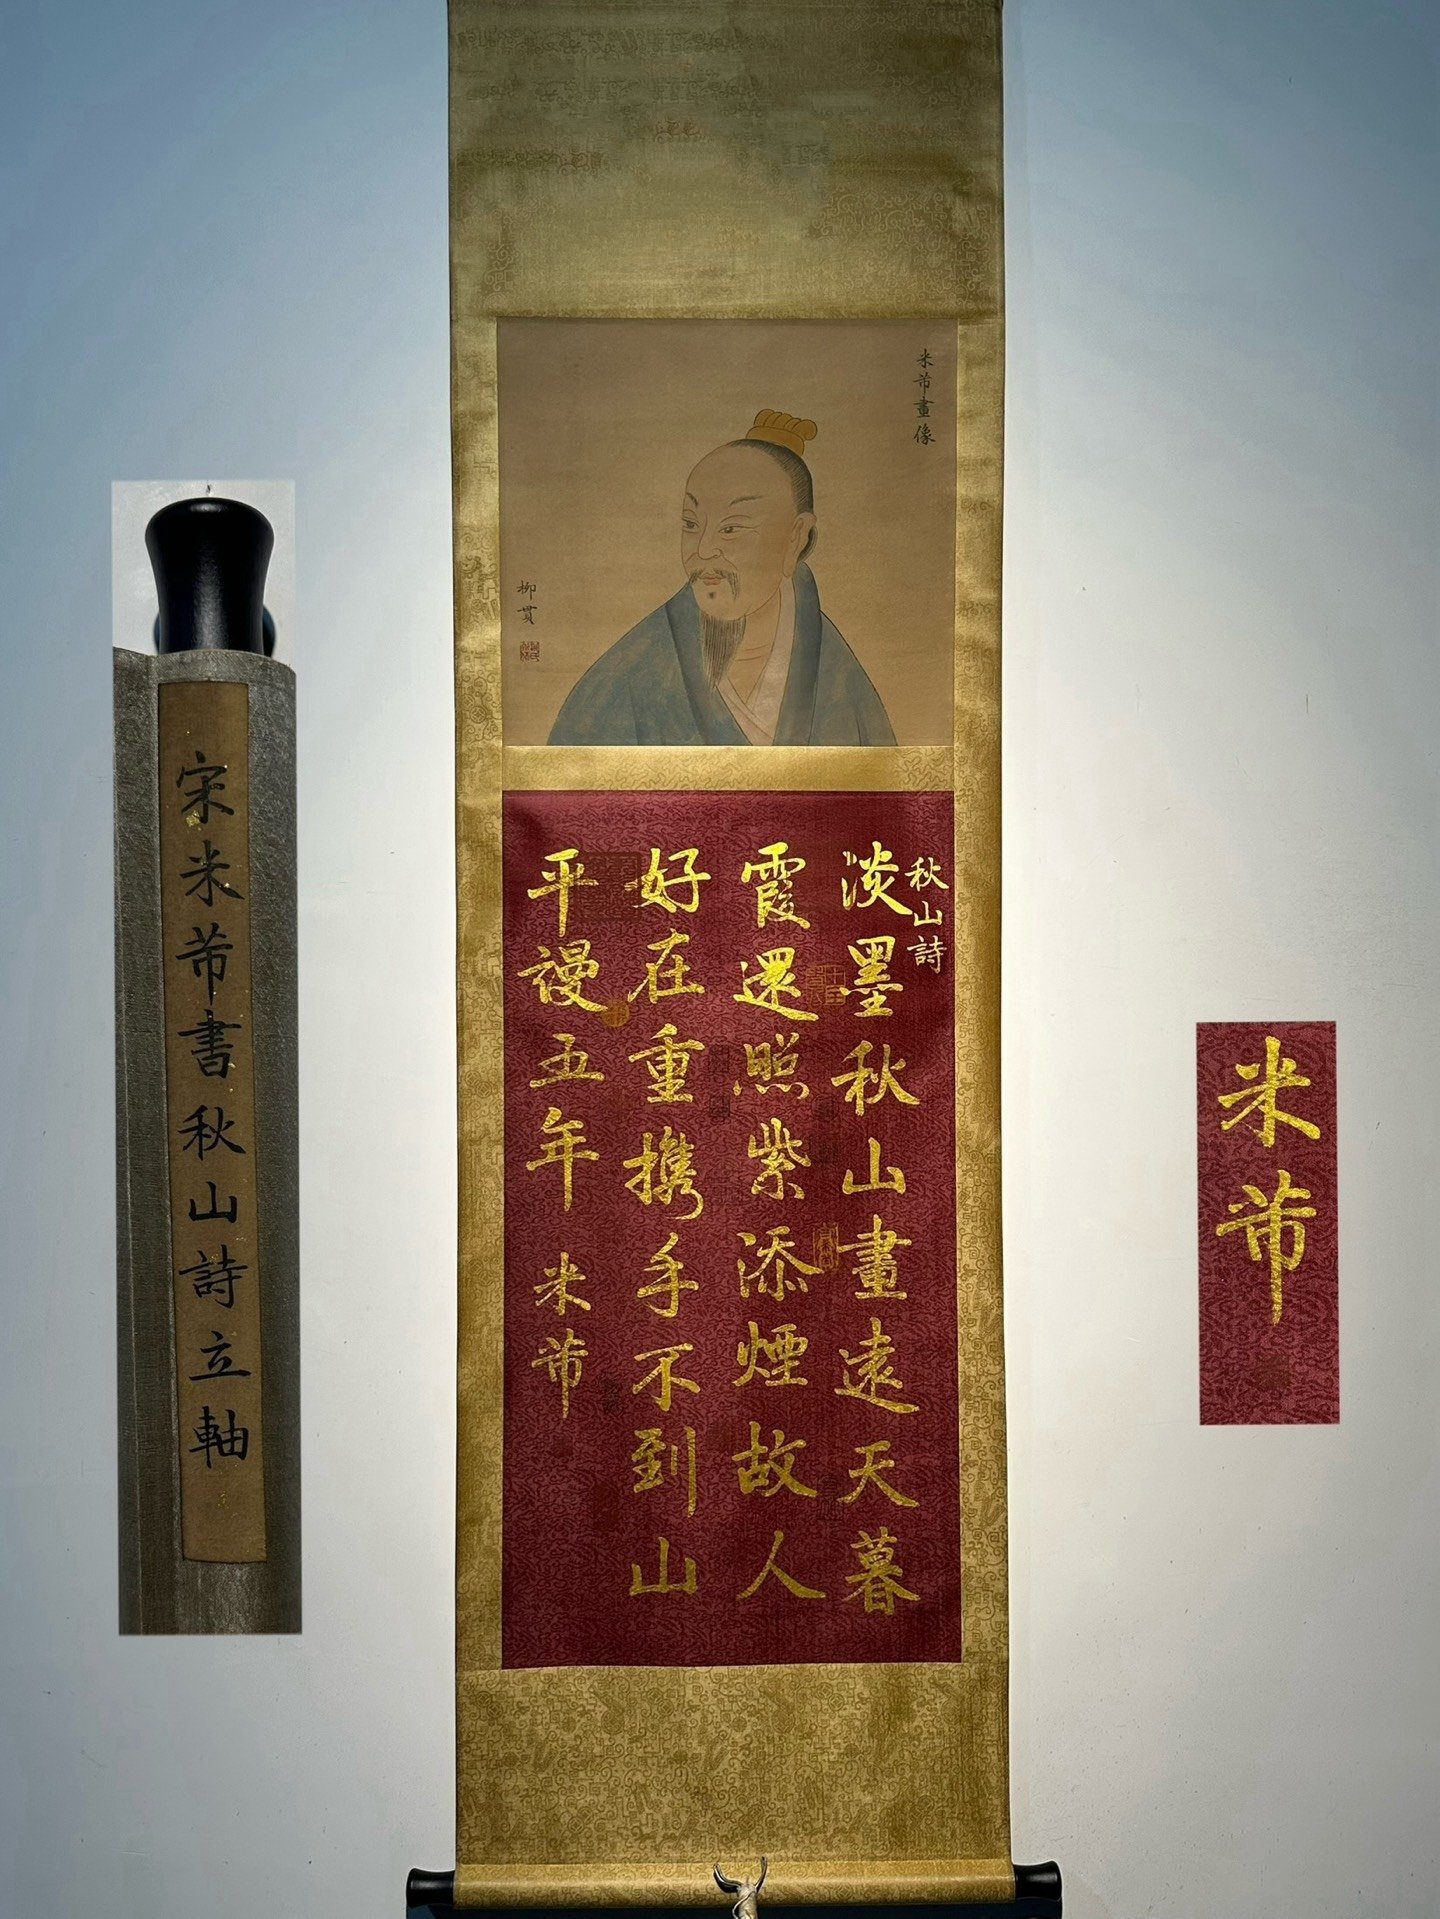 米芾畫像
柳貫
秋山詩
淡墨秋山畫遠天暮
霞還照紫添煙故人
好在重攜手不到山
平謾五年
米芾
宋米芾書秋山詩立軸
米芾